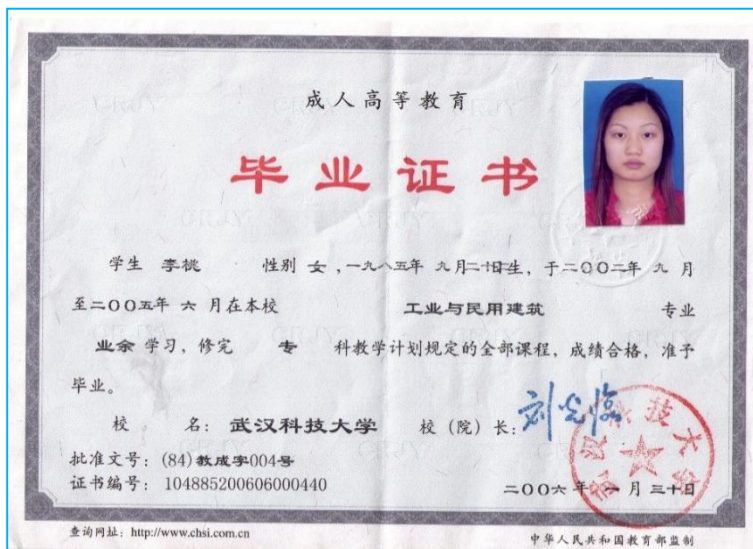 成人高等教育
毕业证书
学生 李桃 性别 女 ,一九八五年 九月二十 日生, 于二〇〇二年 九 月
至二〇〇五年 六 月在本校 工业与民用建筑 专业
业余 学习, 修完 专 科教学计划规定的全部课程, 成绩合格, 准予
毕业。
校 名: 武汉科技大学 校(院)长: 刘光临
批准文号: (84)教成字004号
证书编号: 104885200606000440
二〇〇六年 一月 三十日
查询网址: http://www.chsi.com.cn
中华人民共和国教育部监制
武汉科技大学